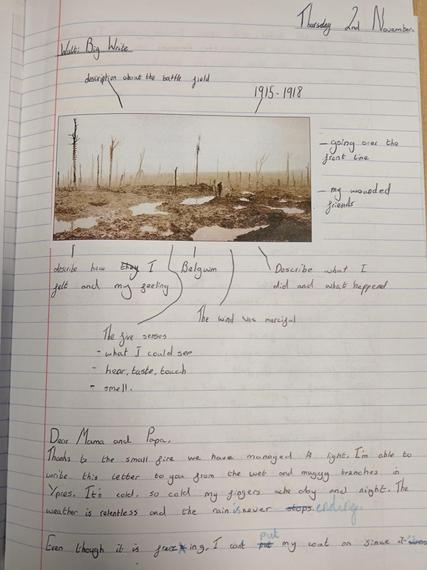 Thursday 2nd November.
Walt: Big Write
description about the battle field
1915-1918
- going over the
front line
- my wounded
friends
describe how they I
felt and my feeling
Belgium
Describe what I
did and what happened
The wind was merciful
The five senses
- what I could see
- hear, taste, touch
- smell.
Dear Mama and Papa,
Thanks to the small fire we have managed to light. I'm able to
write this letter to you from the wet and muggy trenches in
Ypres. It's cold, so cold my fingers ache day and night. The
weather is relentless and the rain is never stops. ending.
Even though it is freezing, I cant put put my coat on since it